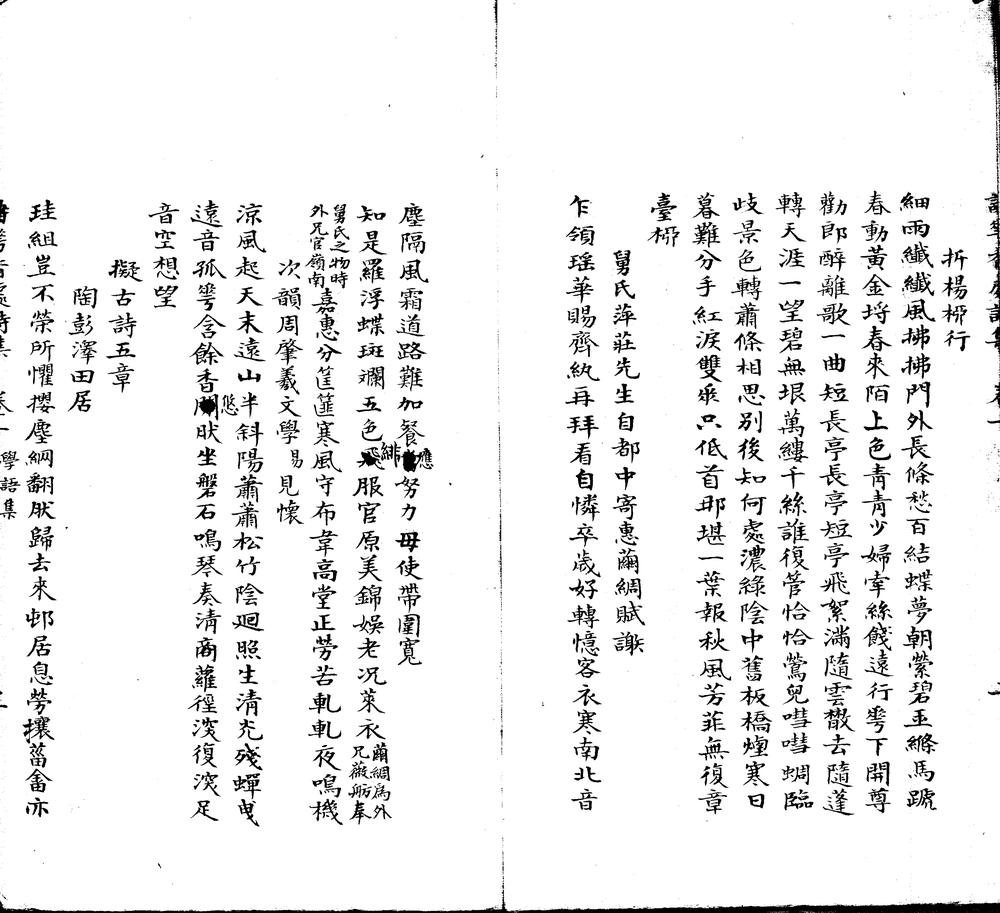 折楊桺行
細雨纖纖風拂拂門外長條愁百結蝶夢朝縈碧玉絛馬蹏
春動黃金埒春來陌上色青青少婦牽絲餞遠行雩下開尊
勸郎醉離歌一曲短長亭長亭短亭飛絮滿隨雲散去隨蓬
轉天涯一望碧無垠萬縷千絲誰復管恰恰鶯兒嘒嘒蜩臨
岐景色轉蕭條相思別後知何處濃綠陰中舊板橋煙寒日
暮難分手紅淚雙垂只低首那堪一葉報秋風芳菲無復章
臺桺
舅氏萍莊先生自都中寄惠繭綢賦謝
乍領瑤華賜齊紈再拜看自憐卒歲好轉憶客衣寒南北音
塵隔風霜道路難加餐應努力毋使帶圍寬
知是羅浮蝶斑斕五色緋服官原美錦娛老況萊衣繭綢為外兄薇舫奉
舅氏之物時外兄官嶺南嘉惠分筐篚寒風守布韋高堂正勞苦軋軋夜鳴機
次韻周肇羲文學易見懷
涼風起天末遠山半斜陽蕭蕭松竹陰迴照生清光殘蟬曳
遠音孤雩含餘香悠肰坐磐石鳴琴奏清商蘿徑深復深足
音空想望
擬古詩五章
陶彭澤田居
珪組豈不榮所懼攖塵網翻肰歸去來邨居息勞攘菑畬亦